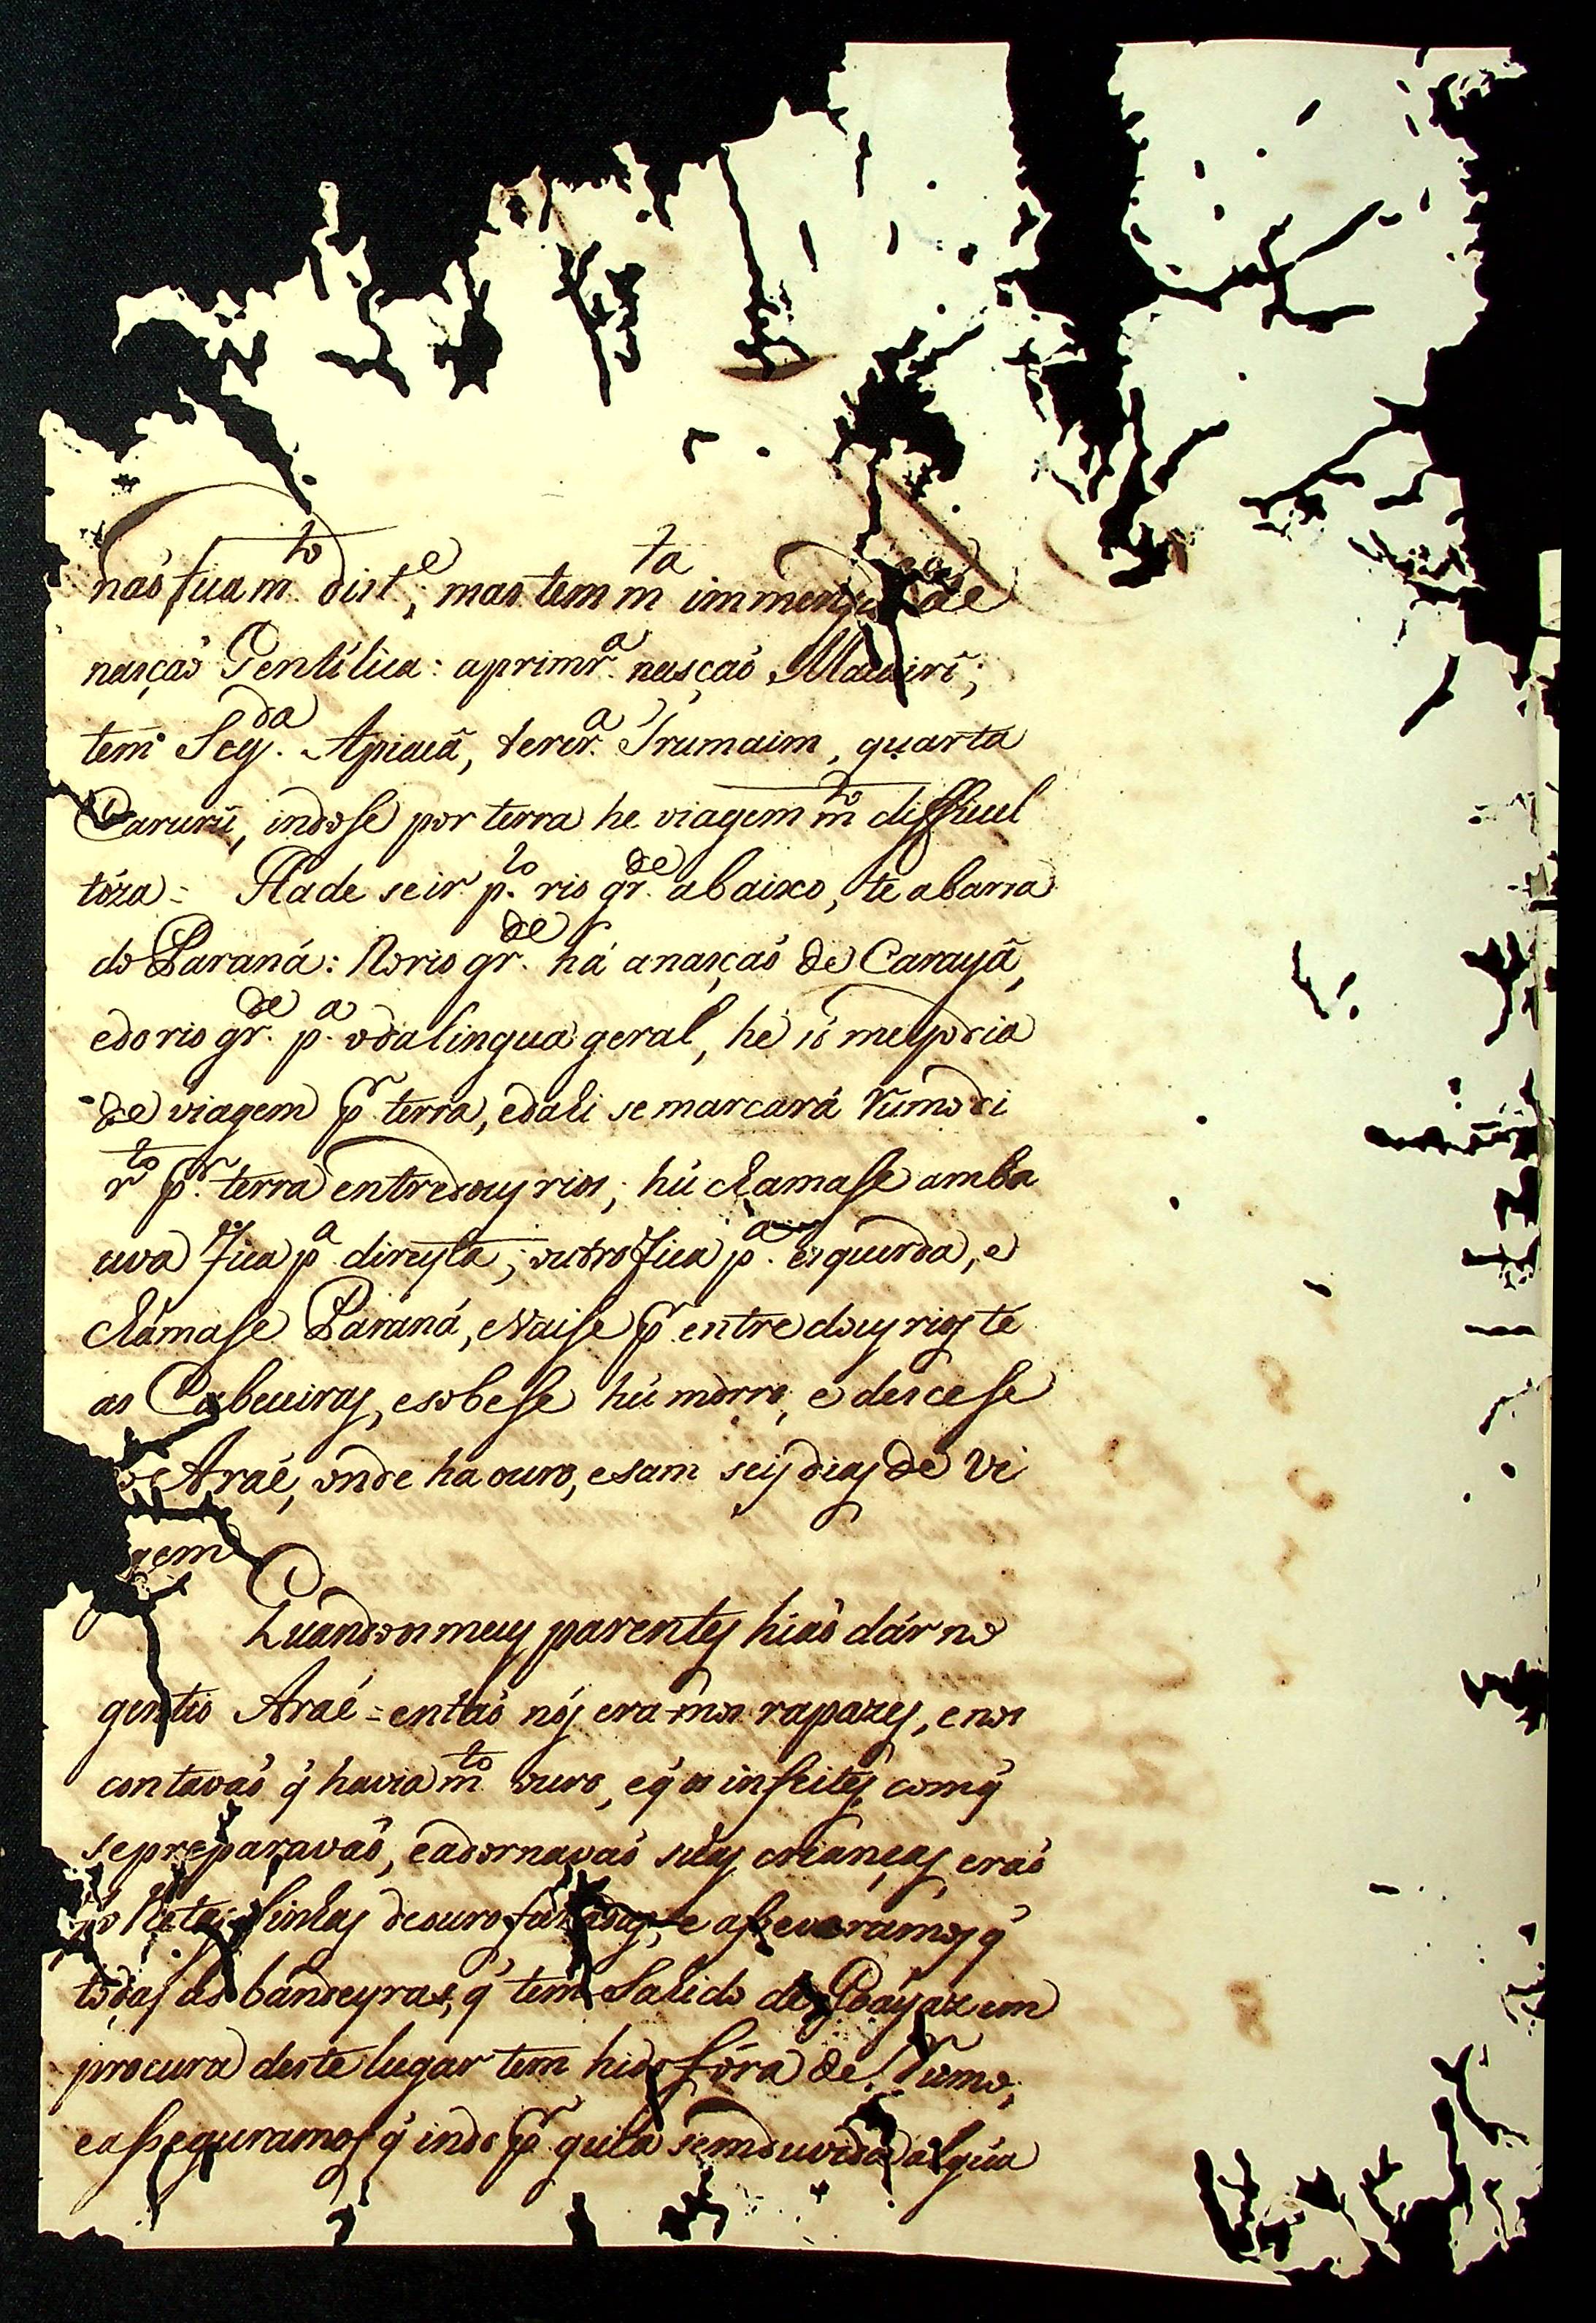 naõ fica m.to dist.e; mas tem m.ta immensid.e de
nasçaõ Gentilica: aprimr.a nasçaõ Macuirî;
tem Seg.da Apiacâ, tercr.a Irumaim, quarta
Carurû, indose por terra he viagem m.to difficul
toza = Hade seir p.lo rio gr.de abaixo, te abarra
do Paraná: No rio gr.de há anasçaõ de Carayâ,
edorio gr.de p.a odalingua geral, he só meyo dia
de viagem p.r terra, edali se marcará Rumo di
r.to p.r terra entredouz rios; hú chamase amba
uva fica p.a direyta; outro fica p.a esquerda, e
chamase Paraná, eVaise p.r entre douz rioz te
as Cabeceiraz, esobese hú morro, e descese
o Araé, onde ha ouro, esam seiz diaz de Vi
agem
Quando os meuz parentez hiaõ dár no
gentio Araé = entaõ nóz eramos rapazez, enos
contavaõ q̃ havia m.to ouro, eq̃ os infeitez com q̃
se preparavaõ, eadornavaõ suaz criançaz, eraõ
só Netazinhaz de ouro furadaz, e asseveramoz q̃
todas as bandeyras, q̃ tem Sahido de Goáyaz em
procura deste lugar tem hido fóra de Rumo;
easseguramos q̃ indo p.r guia sem duvida algúa